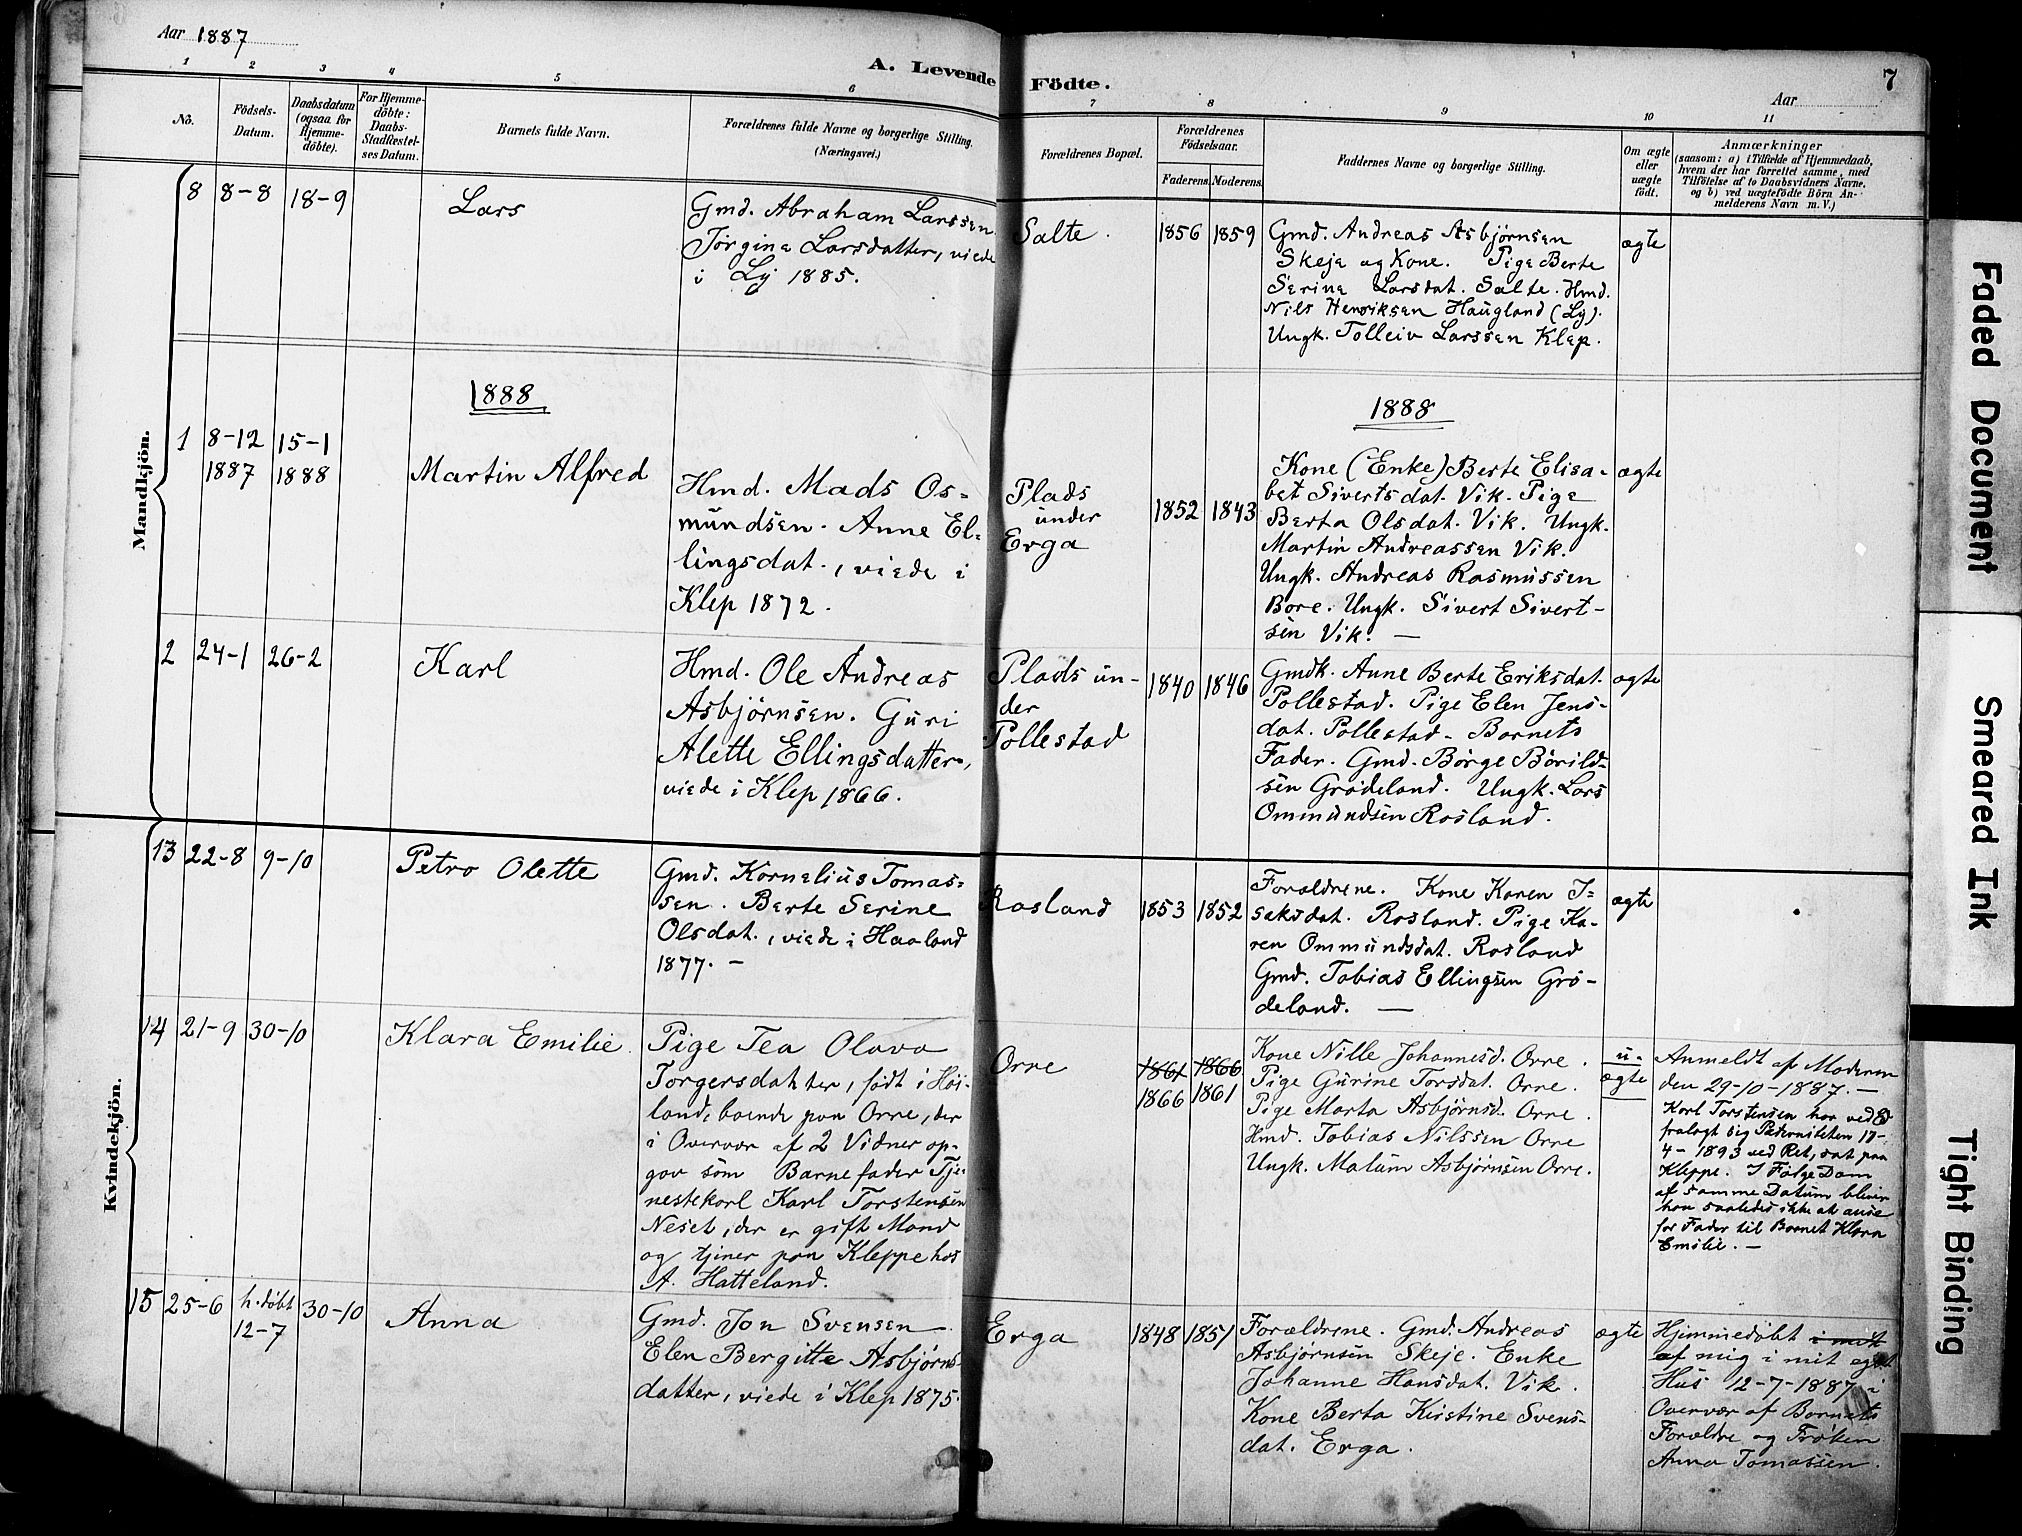 Aar 1887
A. Levende Födte.
Aar
7
1 2 3 4 5 6 7 8 9 10 11
No.
Födsels-
Datum.
Daabsdatum
(ogsaa for
Hjemme-
döbte).
For Hjemme-
döbte:
Daabs-
Stadfæstel-
ses Datum.
Barnets fulde Navn.
Forældrenes fulde Navne og borgerlige Stilling.
(Næringsvei.)
Forældrenes Bopæl.
Forældrenes
Födselsaar.
Faderens. Moderens.
Faddernes Navne og borgerlige Stilling.
Om ægte
eller
uægte
födt.
Anmærkninger
(saasom: a) i Tilfælde af Hjemmedaab,
hvem der har forrettet samme, med
Tilföielse af to Daabsvidners Navne,
og b) ved uægtefödte Börn An-
melderens Navn m. V.)
Mandkjön.
8 8-8 18-9
Lars
Gmd. Abraham Larssen
Jørgine Larsdatter, viede
i Ly 1885.
Salte.
1856 1859
Gmd. Andreas Asbjørnsen
Skeje og Kone. Pige Berte
Serine Larsdat. Salte. Hmd.
Nils Henriksen Haugland (Ly).
Ungk. Tolleiv Larssen Klep.
ægte
1888
1888
1 8-12 15-1
1887 1888
Martin Alfred
Hmd. Mads Os-
mundsen. Anne El-
lingsdat., viede i
Klep 1872.
Plads
under
Erga
1852 1843
Kone (Enke) Berte Elisa-
bet Sivertsdat. Vik. Pige
Berta Olsdat. Vik. Ungk.
Martin Andreassen Vik.
Ungk. Andreas Rasmussen
Bore. Ungk. Sivert Sivert-
sen Vik. —
ægte
2 24-1 26-2
Karl
Hmd. Ole Andreas
Asbjørnsen. Guri
Alette Ellingsdatter,
viede i Klep 1866.
Plads un-
der
Pollestad
1840 1846
Gmdk. Anne Berte Eriksdat.
Pollestad. Pige Elen Jens-
dat. Pollestad - Barnets
Fader. Gmd. Børge Børild-
sen Grødeland. Ungk. Lars
Ommundsen Rosland.
ægte
Kvindekjön.
13 22-8 9-10
Petro Olette
Gmd. Kornelius Tomas-
sen. Berte Serine
Olsdat., viede i Haaland
1877. —
Rosland
1853 1852
Forældrene. Kone Karen I-
saksdat. Rosland. Pige Ka-
ren Ommundsdat. Rosland
Gmd. Tobias Ellingsen Grø-
deland. —
ægte
14 21-9 30-10
Klara Emilie.
Pige Tea Olava
Torgersdatter, født i Høi-
land, boende paa Orre, der
i Overvær af 2 Vidner op-
gav som Barnefader Tje-
nestekarl Karl Torstensen
Neset, der er gift Mand
og tjener paa Kleppe hos
A. Hatteland.
Orre
1861 1866
1866 1861
Kone Nille Johannesd. Orre.
Pige Gurine Torsdat. Orre.
Pige Marta Asbjørnsd. Orre.
Hmd. Tobias Nilssen Orre
Ungk. Malum Asbjørnsen Orre.
u-
ægte
Anmeldt af Moderen
den 29-10-1887. —
Karl Torstensen har ved Ed
fralagt sig Paterniteten 17-
4-1893 ved Ret, sat paa
Kleppe. I Følge Dom
af samme Datum bliver
han saaledes ikke at anse
for Fader til Barnet Klara
Emilie. —
15 25-6 h.døbt 30-10
12-7
Anna
Gmd. Jon Svensen
Elen Bergitte Asbjørns-
datter, viede i Klep 1875.
Erga
1848 1851
Forældrene. Gmd. Andreas
Asbjørnsen Skeje. Enke
Johanne Hansdat. Vik.
Kone Berta Kirstine Svens-
dat. Erga.
ægte
Hjemmedøbt i mit
af mig i mit eget
Hus 12-7-1887 i
Overvær af Barnets
Forældre og Frøken
Anna Tomassen.
Faded Document
Smeared Ink
Tight Binding